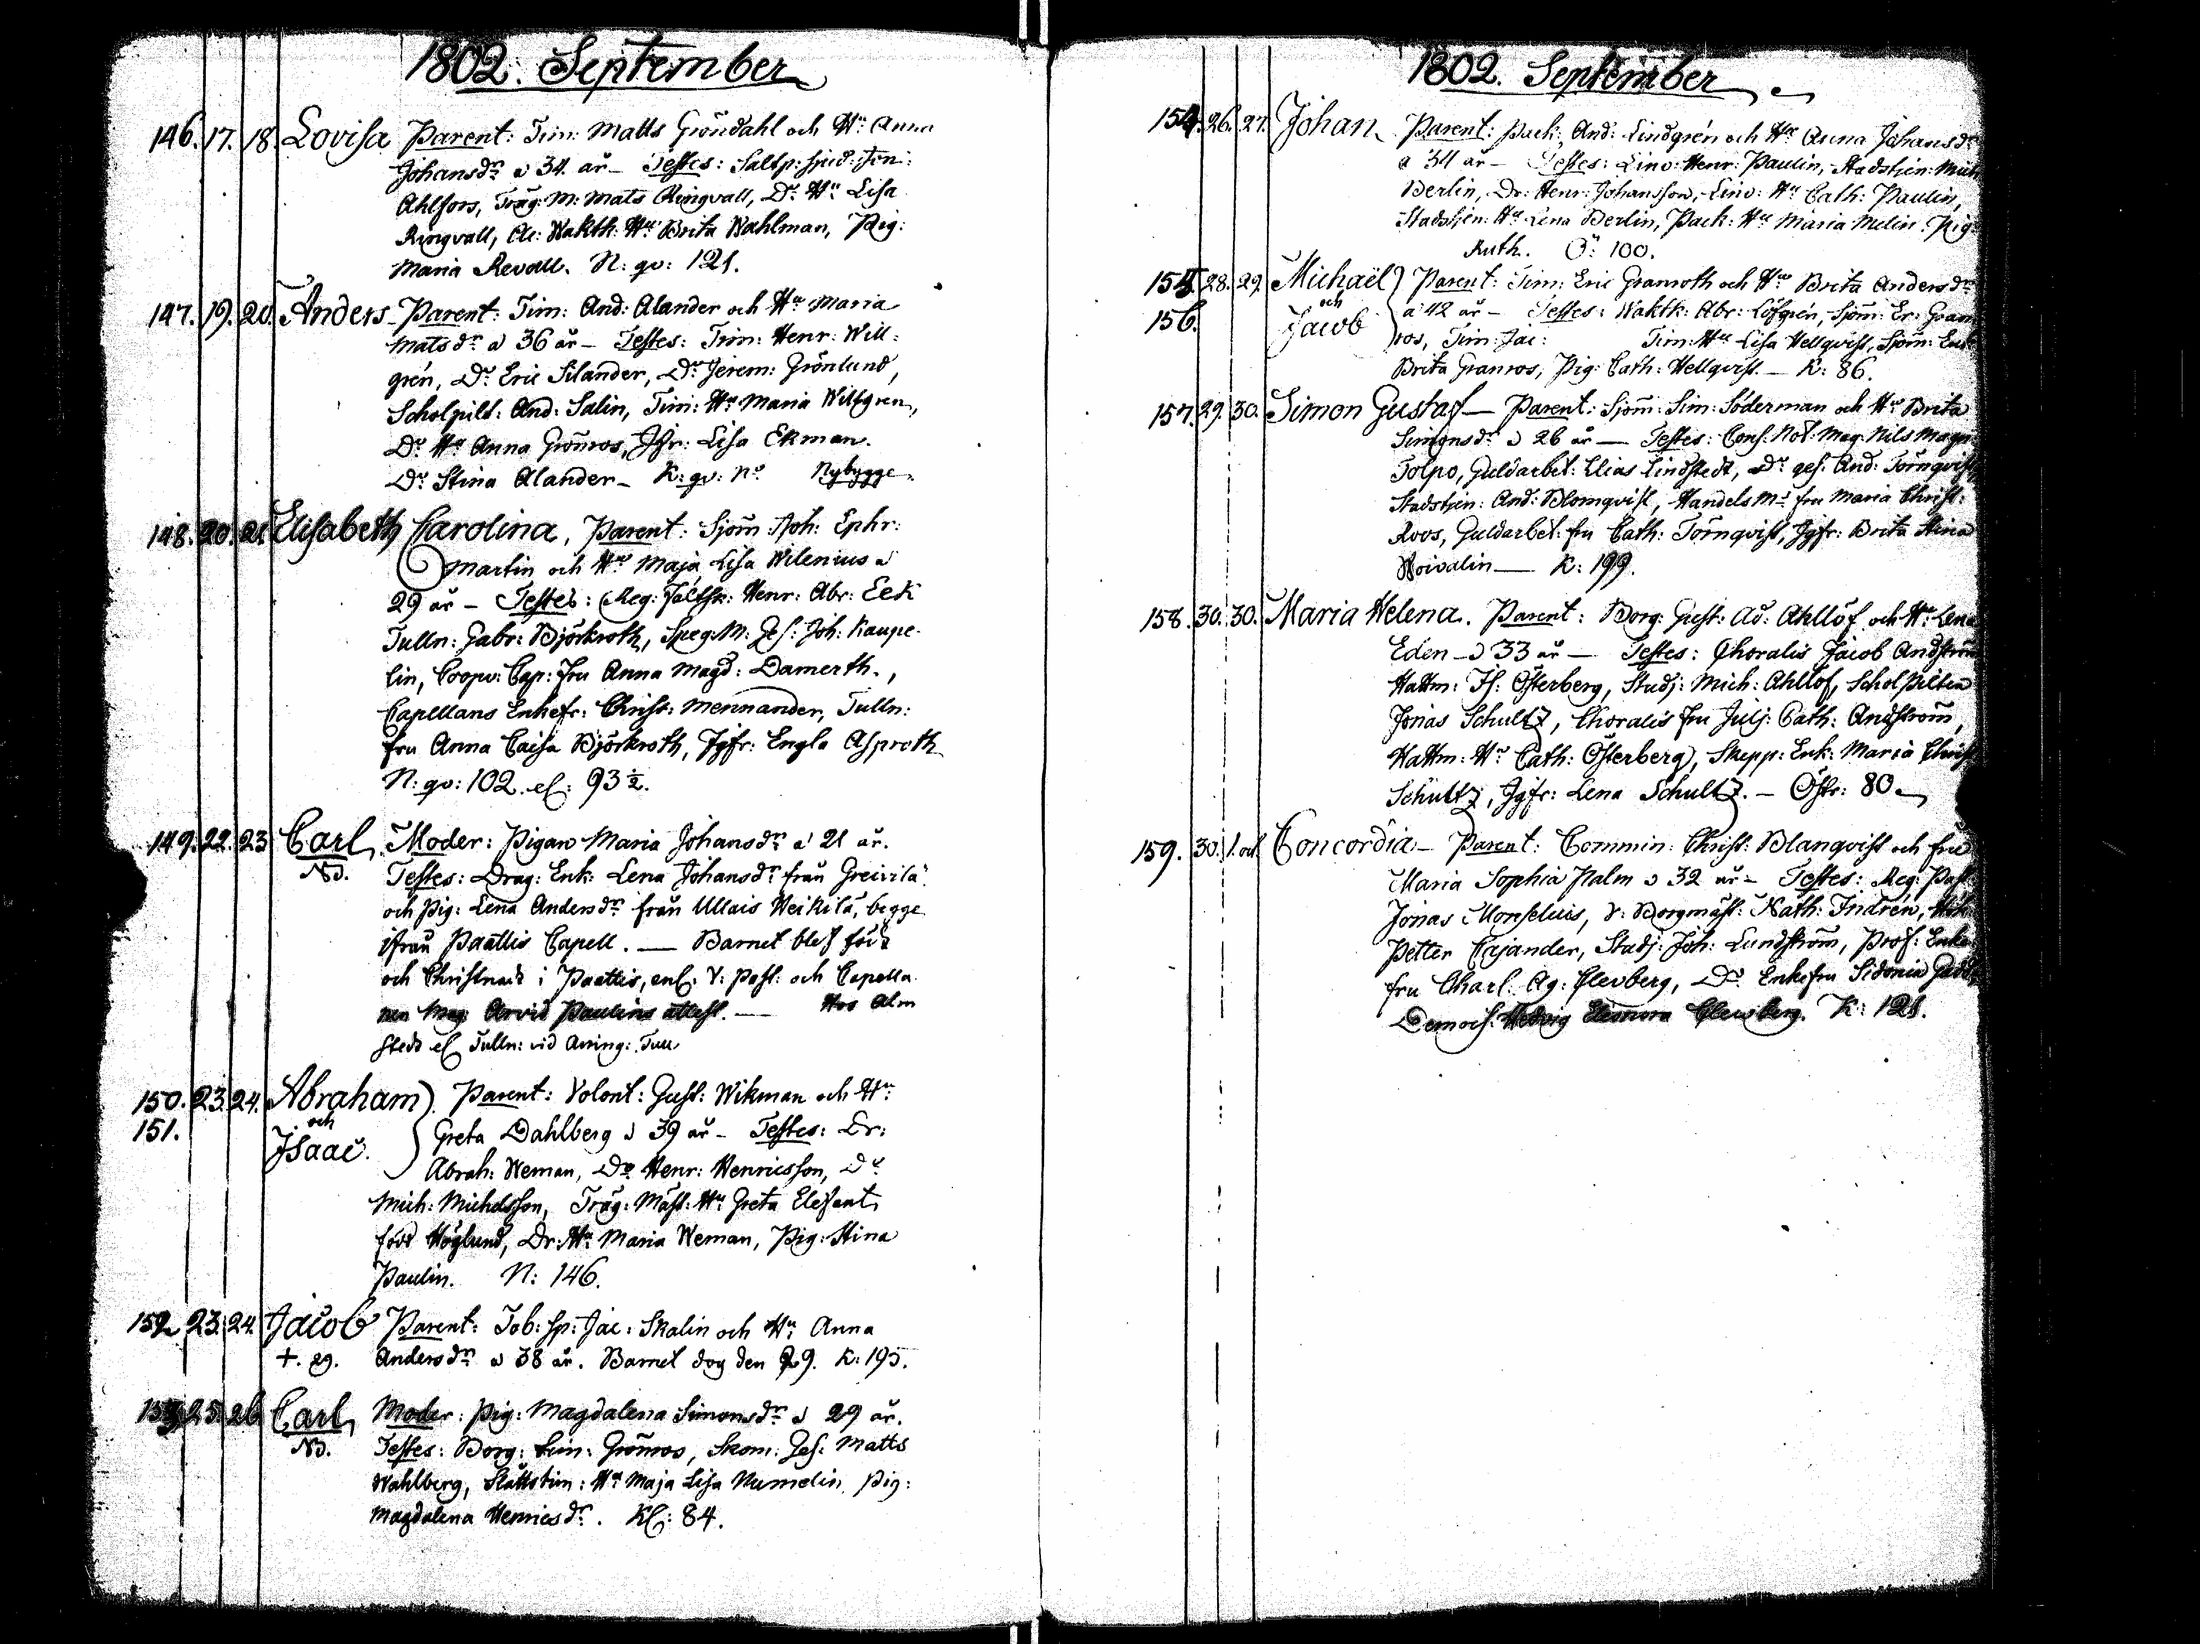 1802. September
146. 17. 18. Lovisa Parent: Tim: Matts Gröndahl och Hu: Anna
Johansdr a 34 år – Testes: Saltp: sjud: Jon:
Ahlfors, Träg: M: Mats Ringvall, Do Hu Lisa
Ringvall, Wakth: Hu Brita Wahlman, Pig:
Maria Revall. N: qv: 121.
147. 19. 20. Anders – Parent: Tim: And: Alander och Hu Maria
Matsdr a 36 år – Testes: Tim: Henr: Will-
grén, Do Eric Silander, Do Jerem: Grönlund,
Scholpilt: And: Salin, Tim: Hu Maria Willgren,
Do Hu Anna Grönroos, Jfr: Lisa Ekman.
Do Stina Alander – K: qv: No Nybygge.
148. 20. 21. Elisabeth Carolina, Parent: Sjöm: Joh: Ephr:
Martin och Hu Maja Lisa Wilenius a
29 år – Testes: Reg: Fältsk: Henr: Abr: Eek
Tulln: Gabr: Björkroth, Speg: M: Ges: Joh: Kaupe-
lin, Coopv: Cap: fru Anna Magd: Damerth.,
Capellans Enkefr: Christ: Mennander, Tulln:
fru Anna Caisa Björkroth, Jgfr: Engla Asproth
N: qv: 102. el: 93 ½.
149. 22. 23 Carl. Moder: Pigan Maria Johansdr a 21 år.
Nd. Testes: Drag: Enk: Lena Johansdr från Greivilä
och Pig: Lena Andersdr från Ullais Heikilä, begge
ifrån Paattis Capell. — Barnet blef föd
och Christnad i Paattis, enl. V: Past: och Capella
nen Mag Arvid Paulins attest. — Hos Alm
stedt el Tulln: vid Aning: Tull
150. 23. 24. Abraham Parent: Volont: Gust: Wikman och Hu:
151. och Isaac. Greta Dahlberg a 39 år – Testes: Dr:
Abrah: Weman, Do Henr: Henricsson, Do
Mich: Michelsson, Träg: Mäst: Hu: Greta Elefant
född Höglund, Dr: Hu: Maria Weman, Pig: Stina
Paulin. N: 146.
152. 23. 24. Jacob Parent: Tob: Sp: Jac: Skalin och Hu: Anna
†. 29. Andersdr a 38 år. Barnet dog den 29. K: 195.
153. 25. 26. Carl, Moder: Pig: Magdalena Simonsdr a 29 år.
Nd. Testes: Borg: Sim: Grönroos, Skom: Ges: Matts
Wahlberg, Hu Maja Lisa Numelin, Pig:
Magdalena Henricsdr. Kl: 84.
1802. September
154. 26. 27. Johan Parent: Pack: And: Lindgrén och Hu Anna Johansdr
a 34 år – Testes: Linv: Henr: Paulin, Stadstjen: Mich
Berlin, Dr: Henr: Johansson, Linv: Hu Cath: Paulin,
Stadstjen: Hu Lena Berlin, Pack: Hu Maria Melin, Pig:
Ruth. Ö: 100.
155. 28. 29. Michaël Parent: Tim: Eric Granroth och Hu Brita Andersdr
156. och Jacob a 42 år – Testes: Wakth: Abr: Löfgrén, Sjöm: Er: Gran
ros, Tim: Jac: Tim: Hu Lisa Hellqvist, Sjöm: Enk
Brita Granros, Pig: Cath: Hellqvist – K: 86.
157. 29. 30. Simon Gustaf – Parent: Sjöm: Sim: Söderman och Hu Brita
Simonsdr a 26 år — Testes: Cons: Not: Mag: Nils Magn
Tolpo, Guldarbet: Elias Lindstedt, Do ges: And: Törnqvist,
Stadstjen: And: Blomqvist, Handels Ms fru Maria Christ:
Roos, Guldarbet: fru Cath: Törnqvist, Jgfr: Brita Stina
Woivalin — K: 199.
158. 30. 30. Maria Helena. Parent: Borg: Gust: Ad: Ahllöf och Hu: Lena
Eden – a 33 år — Testes: Choralis Jacob Andström
Hattm: Is: Österberg, Studj: Mich: Ahllöf, Scholpilten
Jonas Schultz, Choralis fru Julj: Cath: Andström,
Hattm: Hu Cath: Österberg, Skepp: Enk: Maria Christ
Schultz, Jgfr: Lena Schultz. – Östr: 80.
159. 30. 1. oct. Concordia – Parent: Commin: Christ: Blanqvist och fru
Maria Sophia Palm a 32 år – Testes: Reg: Past:
Jonas Monselius, V: Borgmäst: Nath: Indrén,
Petter Cajander, Studj: Joh: Lundström, Prof: Enke
fru Charl: Ag: Clevberg, Do Enkefru Sidonia Gadd,
Demois: Hedvig Eleonora Clewberg. K: 121.